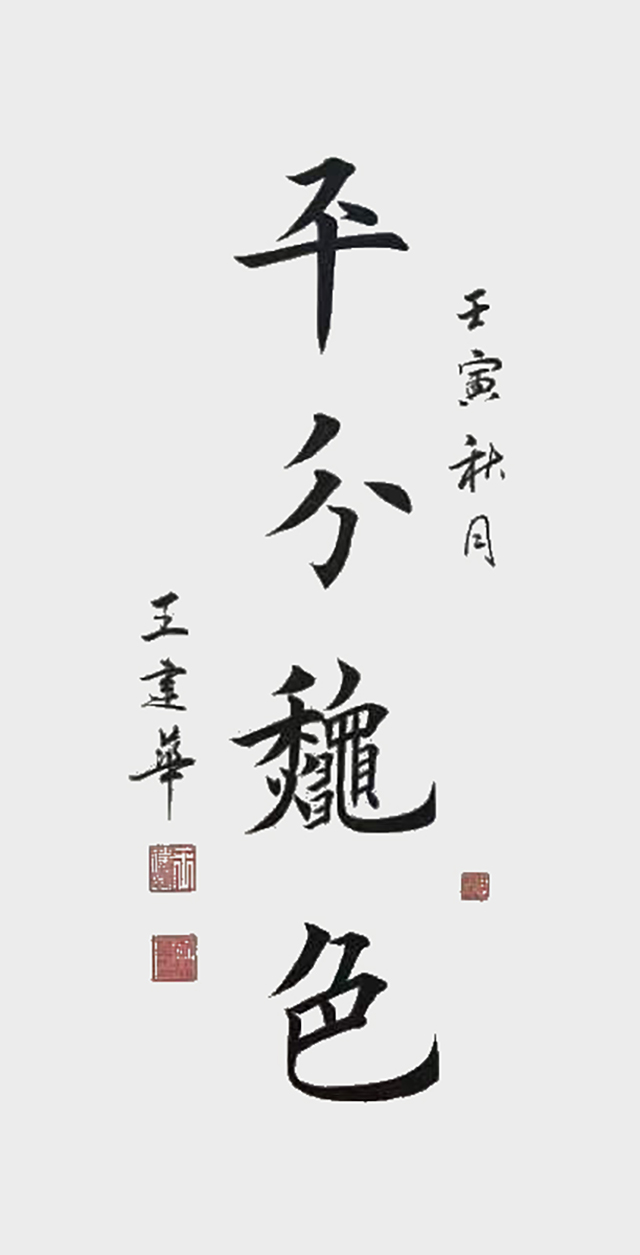 壬寅秋月
平分龝色
王建華